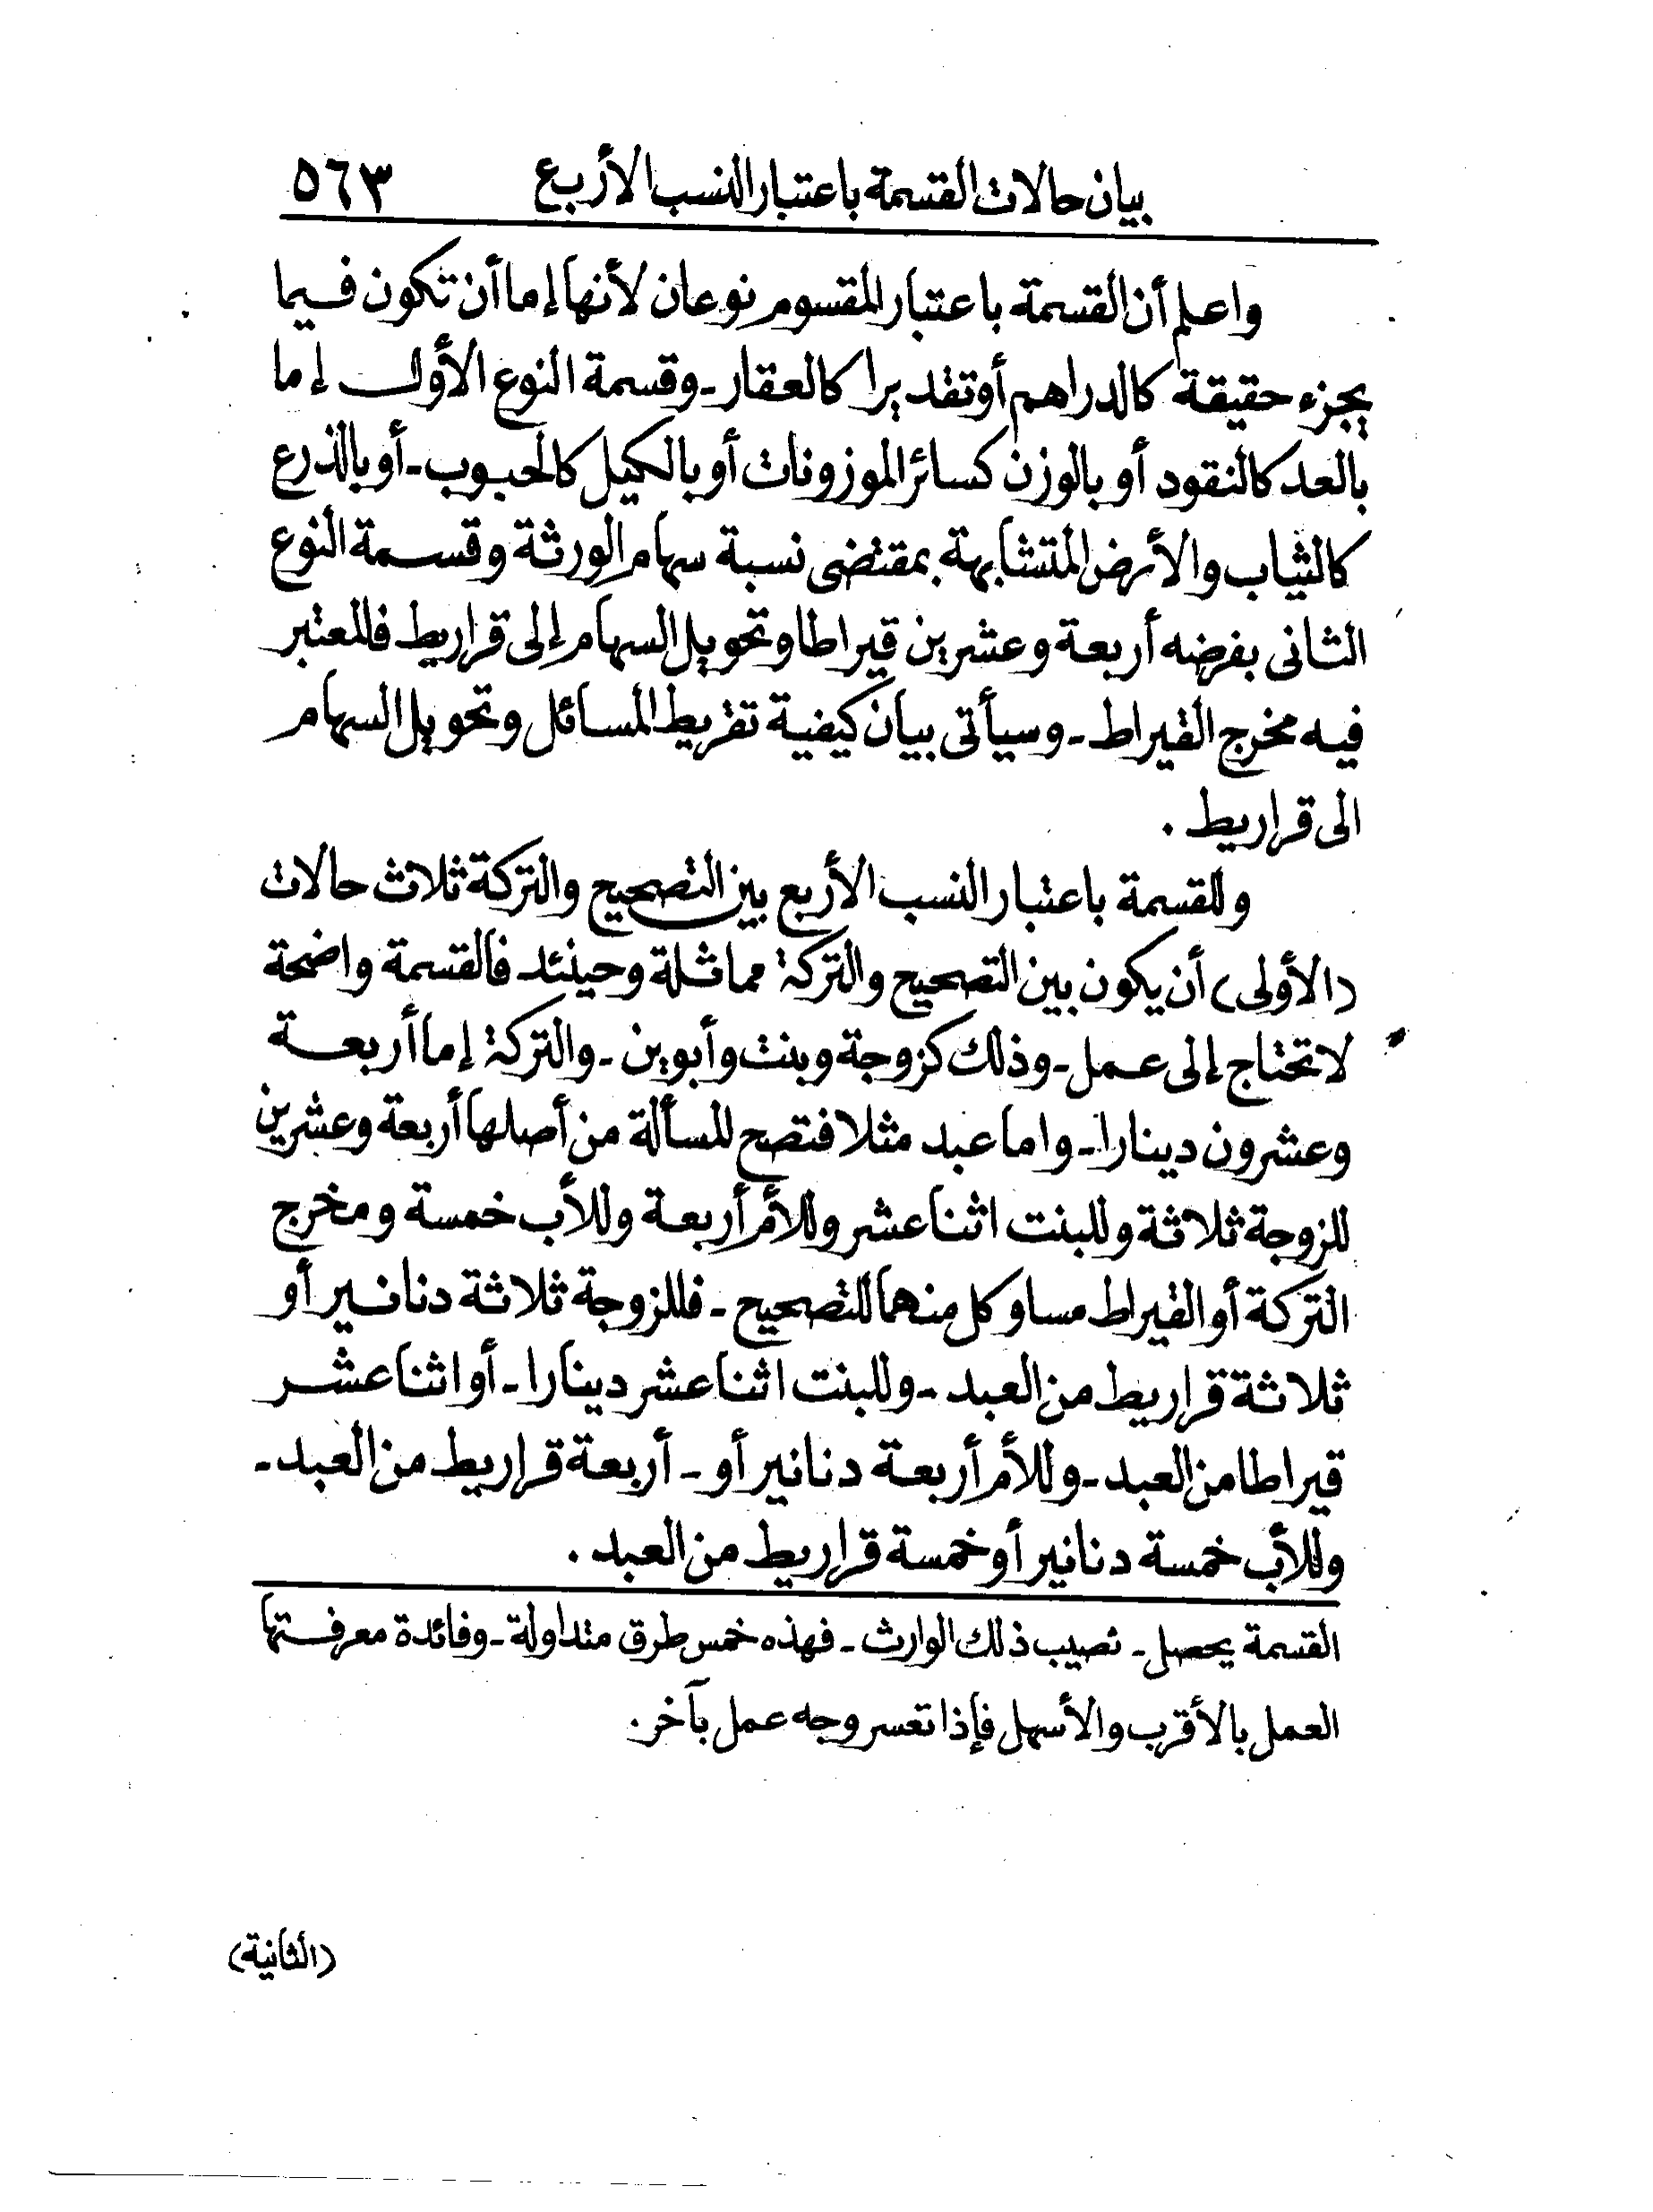 بيان حالات القسمة باعتبار النسب الأربع ٥٦٣
واعلم أن القسمة باعتبار المقسوم نوعان لأنها إما أن تكون فيما
يجزء حقيقة كالدراهم أو تقديرا كالعقار - وقسمة النوع الأول إما
بالعد كالنقود أو بالوزن كسائر الموزونات أو بالكيل كالحبوب - أو بالذرع
كالثياب والأرض المتشابهة بمقتضى نسبة سهام الورثة وقسمة النوع
الثانى بفرضه أربعة وعشرين قيراطا وتحويل السهام إلى قراريط فالمعتبر
فيه مخرج القيراط - وسيأتى بيان كيفية تقريط المسائل وتحويل السهام
الى قراريط .
وللقسمة باعتبار النسب الأربع بين التصحيح والتركة ثلاث حالات
(الأولى) أن يكون بين التصحيح والتركة مماثلة وحينئد فالقسمة واضحة
لا تحتاج إلى عمل - وذلك كزوجة وبنت وأبوين - والتركة إما أربعة
وعشرون دينارا - واما عبد مثلا فتصح المسألة من أصلها أربعة وعشرين
للزوجة ثلاثة وللبنت اثنا عشر وللأم أربعة وللأب خمسة ومخرج
التركة أو القيراط مساو كل منهما للتصحيح - فللزوجة ثلاثة دنانير أو
ثلاثة قراريط من العبد - وللبنت اثنا عشر دينارا - أو اثنا عشر
قيراطا من العبد - وللأم أربعة دنانير أو - أربعة قراريط من العبد -
وللأب خمسة دنانير أو خمسة قراريط من العبد .
القسمة يحصل - نصيب ذلك الوارث - فهذه خمس طرق متداولة - وفائدة معرفتها
العمل بالأقرب والأسهل فإذا تعسر وجه عمل بآخر .
(الثانية)